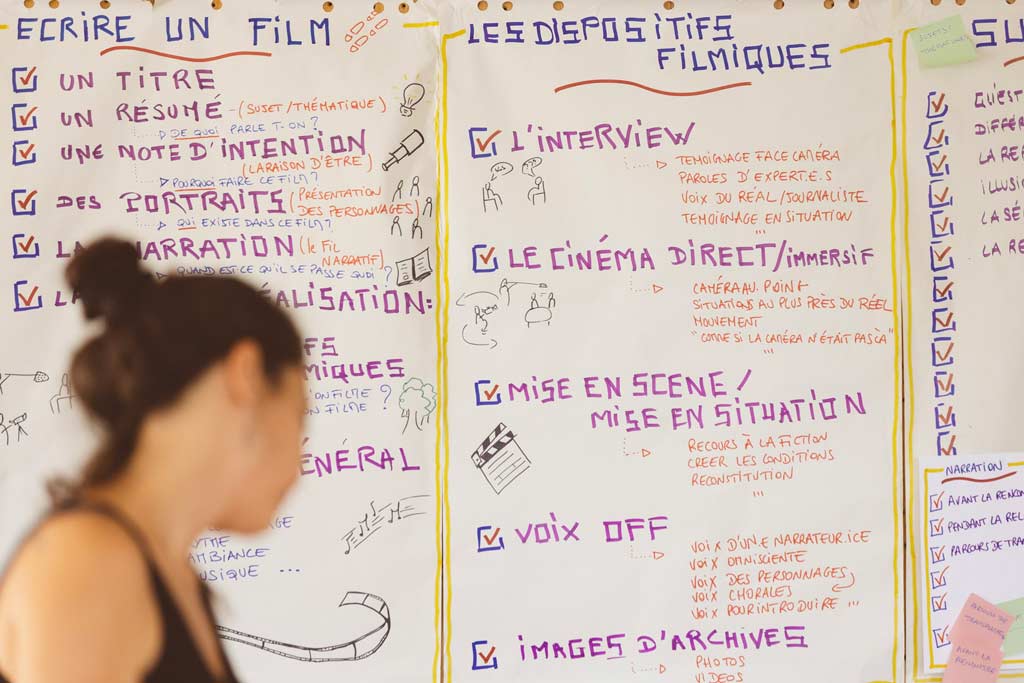 ECRIRE UN FILM
UN TITRE
UN RÉSUMÉ - (SUJET/THÉMATIQUE)
DE QUOI PARLE T-ON ?
UNE NOTE D'INTENTION
(LA RAISON D'ÊTRE)
POURQUOI FAIRE CE FILM ?
DES PORTRAITS (PRÉSENTATION
DES PERSONNAGES)
QUI EXISTE DANS CE FILM ?
NARRATION (le FIL
NARRATIF)
QUAND EST CE QU'IL SE PASSE QUOI ?
ALISATION:
FS
MIQUES
ON FILME ?
ON FILME
ÉNÉRAL
AMBIANCE
MUSIQUE ...
LES DISPOSITIFS
FILMIQUES
L'INTERVIEW
TEMOIGNAGE FACE CAMÉRA
PAROLES D'EXPERT.E.S
VOIX DU RÉAL/JOURNALISTE
TEMOIGNAGE EN SITUATION
...
LE CINÉMA DIRECT/IMMERSIF
CAMÉRA AU POING
SITUATIONS AU PLUS PRÈS DU RÉEL
MOUVEMENT
"COMME SI LA CAMÉRA N'ÉTAIT PAS LÀ"
...
MISE EN SCENE /
MISE EN SITUATION
RECOURS À LA FICTION
CREER LES CONDITIONS
RECONSTITUTION
...
VOIX OFF
VOIX D'UN.E NARRATEUR.ICE
VOIX OMNISCIENTE
VOIX DES PERSONNAGES
VOIX CHORALES
VOIX POUR INTRODUIRE ...
IMAGES D'ARCHIVES
PHOTOS
VIDEOS
SU
QU'EST
DIFFÉR
LA REP
ILLUSI
LA SÉ
LA RE
NARRATION
AVANT LA RENCON
PENDANT LA REL
PARCOURS DE TRA
AVANT LA
RENCONTRE